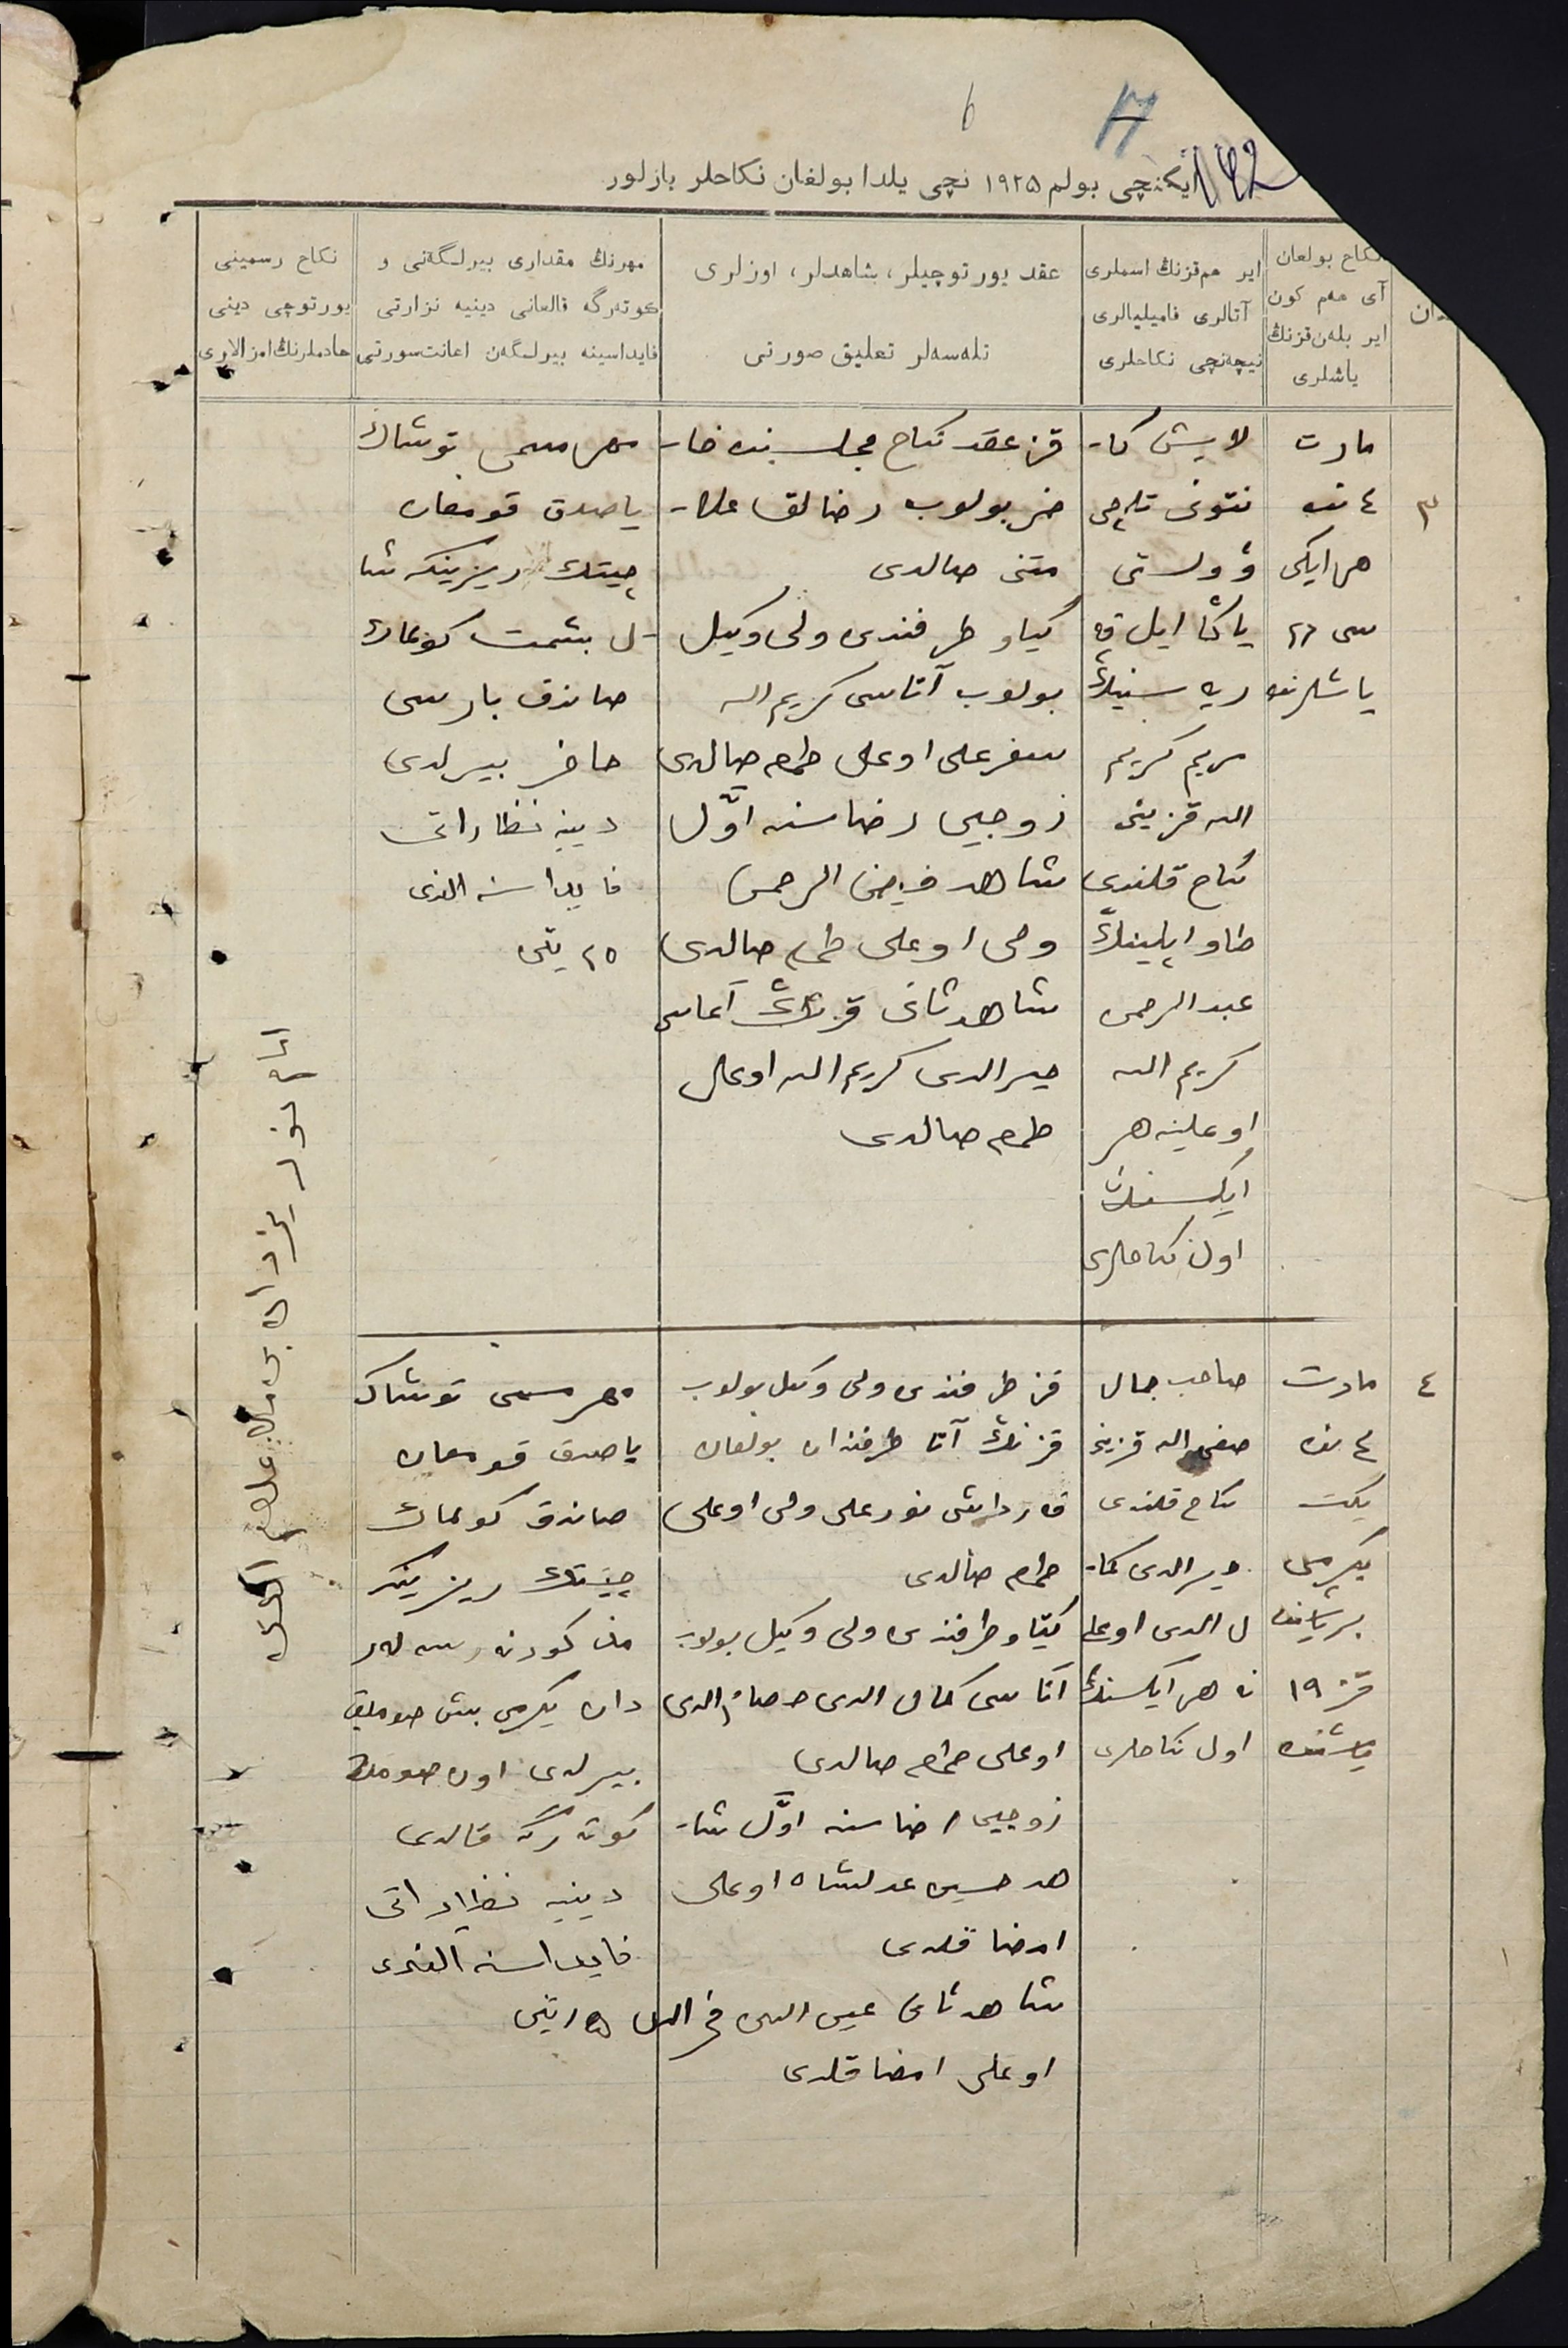 6
17
142
ایکنچی بولم ۱۹۲۵ نچی یلدا بولغان نکاحلر یازلور
نکاح بولغان
آی هم کون
ایر بلەن قزنڭ
یاشلری
ایر هم قزنڭ اسملری
آتالری فامیلیالری
نیچەنچی نکاحلری
عقد یورتوچیلر، شاهدلر، اوزلری
تلەسەلر تعلیق صورتی
مهرنڭ مقداری بیرلگەنی و
کوتەرگە قالغانی دینیە نزارتی
فایداسینە بیرلگەن اعانت سورتی
نکاح رسمینی
یورتوچی دینی
خادملرنڭ امزالاری
۳
مارت
٤ نده
هر ایکی
سی ۲۲
یاشلرنده
لایش کا-
نتونی
ۋولستی
یاڭا ایل
ریه سنینڭ
مریم کریم
الله قزینی
نکاح قلندی
عبدالرحمن
کریم الله
اوغلینه هر
ایکسنڭ
اول نکاحلری
قز عقد نکاح مجلسنده حا-
ضر بولوب رضالق علا-
متنی صالدی
کیاو طرفندن ولی وکیل
بولوب آتاسی کریم الله
سفرعلی اوغلی طمغه صالدی
زوجیی رضاسنه اوّل
شاهد فیض الرحمن
ولی اوغلی طمغه صالدی
شاهد ثانی قزنڭ آغاسی
خیرالدین کریم الله اوغلی
طمغه صالدی
مهر مسمی توشاك
یاصدق قومغان
چیتك ریزینکه شا
-ل بشمت کولماك
صاندق بارسی
حاضر بیرلدی
دینیه نظاراتی
فایداسنه الندی
۲۵ تین
٤
مارت
٤ نده
یکت
یکرمی
بر یاشنده
قز ۱۹
یاشنده
صاحب جمال
صفی الله قزینی
نکاح قلندی
خیرالدین کما-
ل الدین اوغلی
نه هر ایکسنڭ
اول نکاحلری
قز طرفندن ولی وکیل بولوب
قزنڭ آتا طرفندان بولغان
قارداشی نورعلی ولی اوغلی
طمغه صالدی
کیاو طرفندن ولی وکیل بولوب
آتاسی کمال الدین حسام الدین
اوغلی طمغه صالدی
زوجیی رضاسنه اوّل شا-
هد حسین عدلشاه اوغلی
امضا قلدی
شاهد ثانی عین الدین فخر الدین
اوغلی امضا قلدی
مهر مسمی توشاك
یاصدق قومغان
صاندق کولماك
چیتك ریزینکه
دان یکرمی بیش صوملق
بیرلدی اون صوملق
کوتەرگە قالدی
دینیه نظاراتی
فایداسنه الندی
۲۵ تین